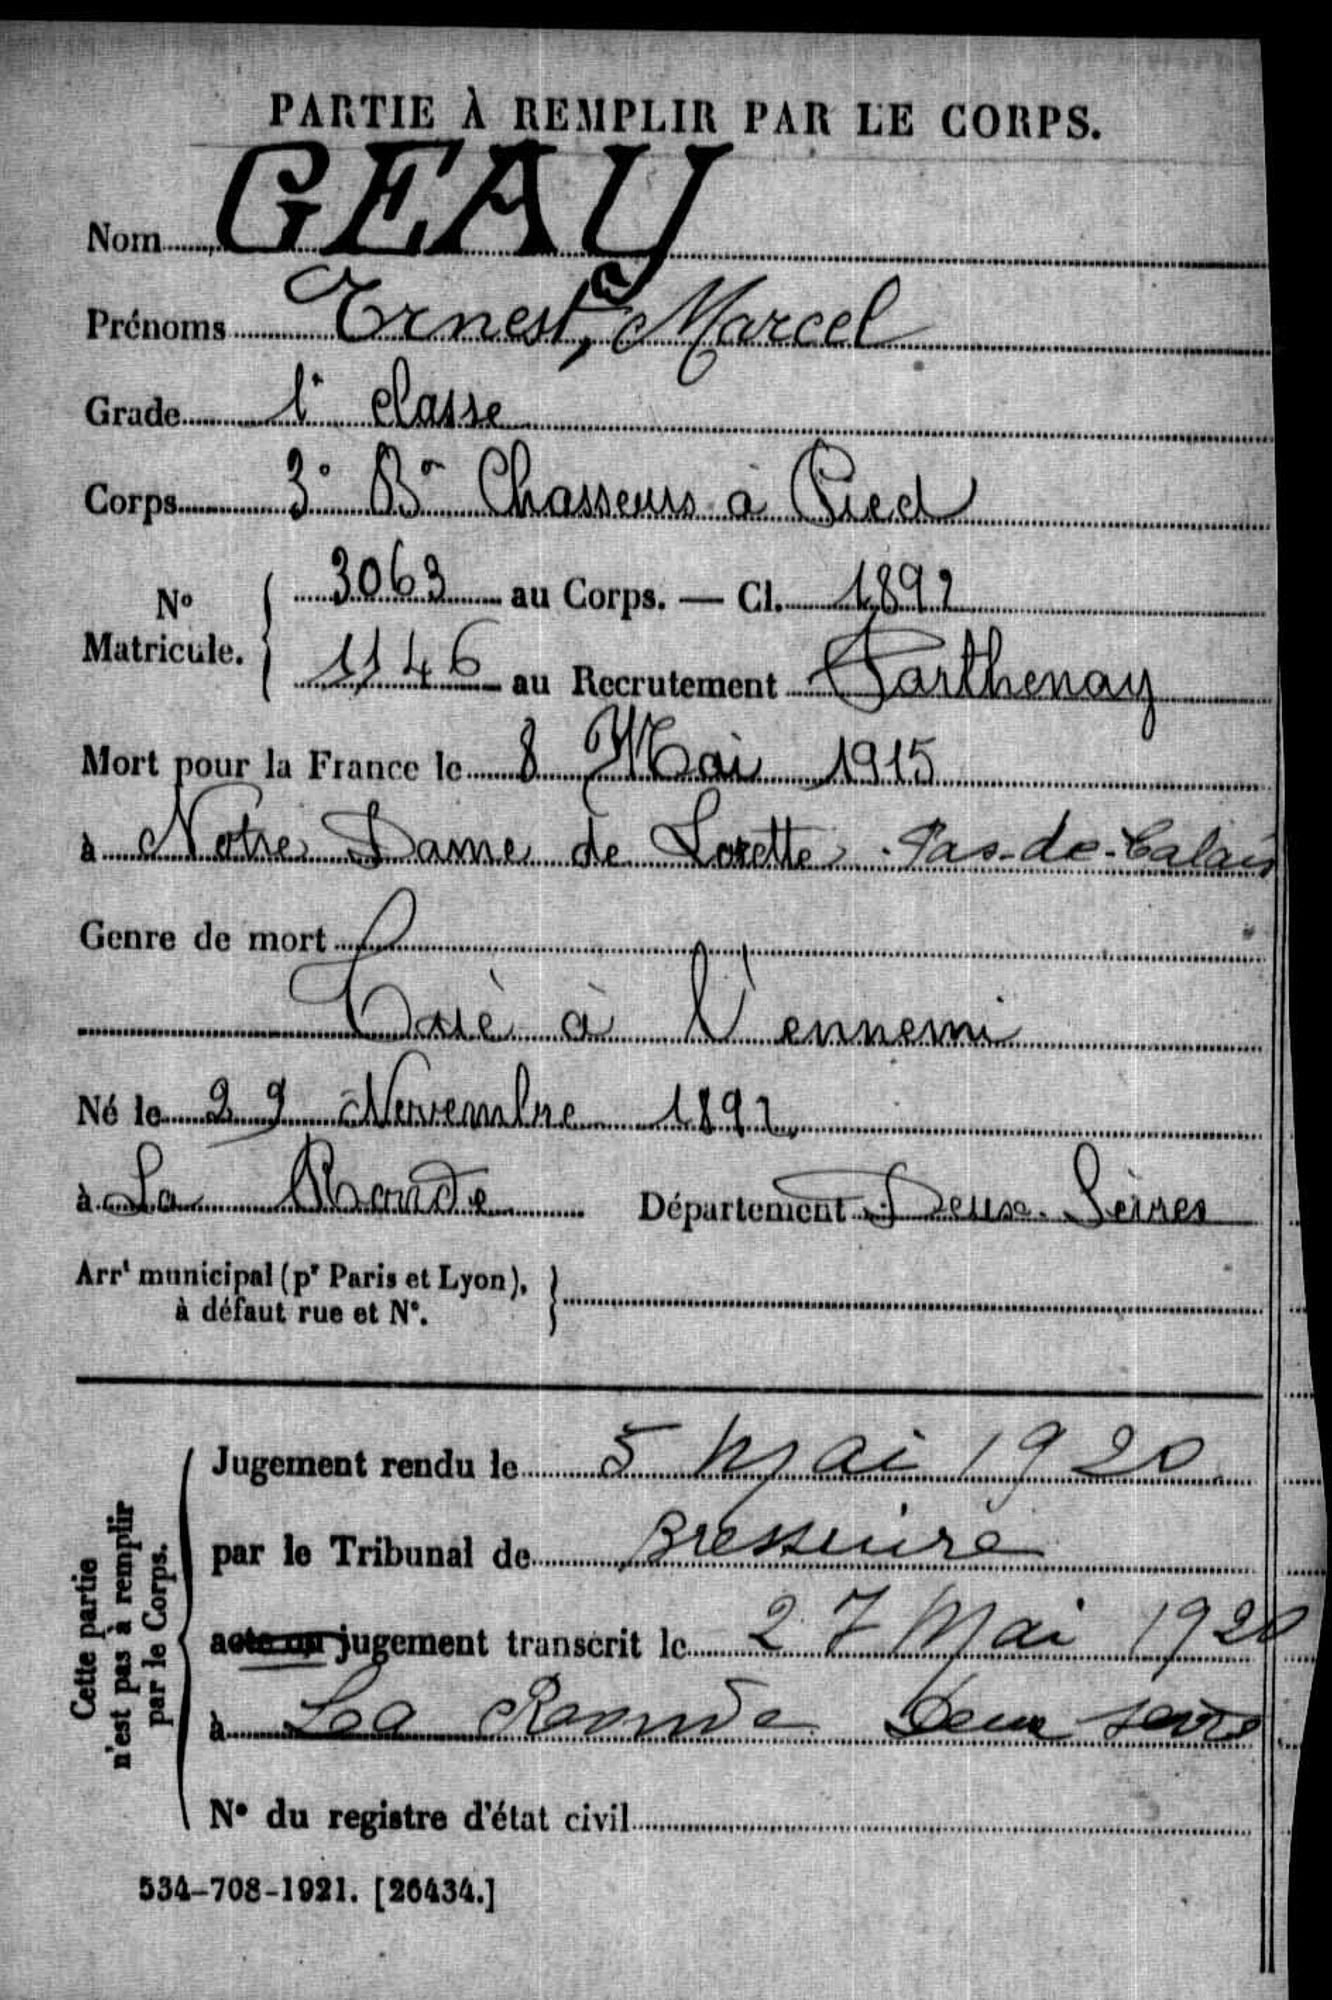 PARTIE À REMPLIR PAR LE CORPS.
Nom GEAY
Prénoms Ernest, Marcel
Grade 1e classe
Corps 3e Bon Chasseurs à Pied
No Matricule. { 3063 au Corps. — Cl. 1892
1146 au Recrutement Parthenay
Mort pour la France le 8 Mai 1915
à Notre Dame de Lorette Pas-de-Calais
Genre de mort
Tué à l'ennemi
Né le 29 Novembre 1892
à La Ronde Département Deux-Sèvres
Arrt municipal (pr Paris et Lyon),
à défaut rue et N°.
Cette partie n'est pas à remplir par le Corps.
Jugement rendu le 5 Mai 1920
par le Tribunal de Bressuire
acte ou jugement transcrit le 27 Mai 1920
à La Ronde Deux sèvres
N° du registre d'état civil
534-708-1921. [26434.]